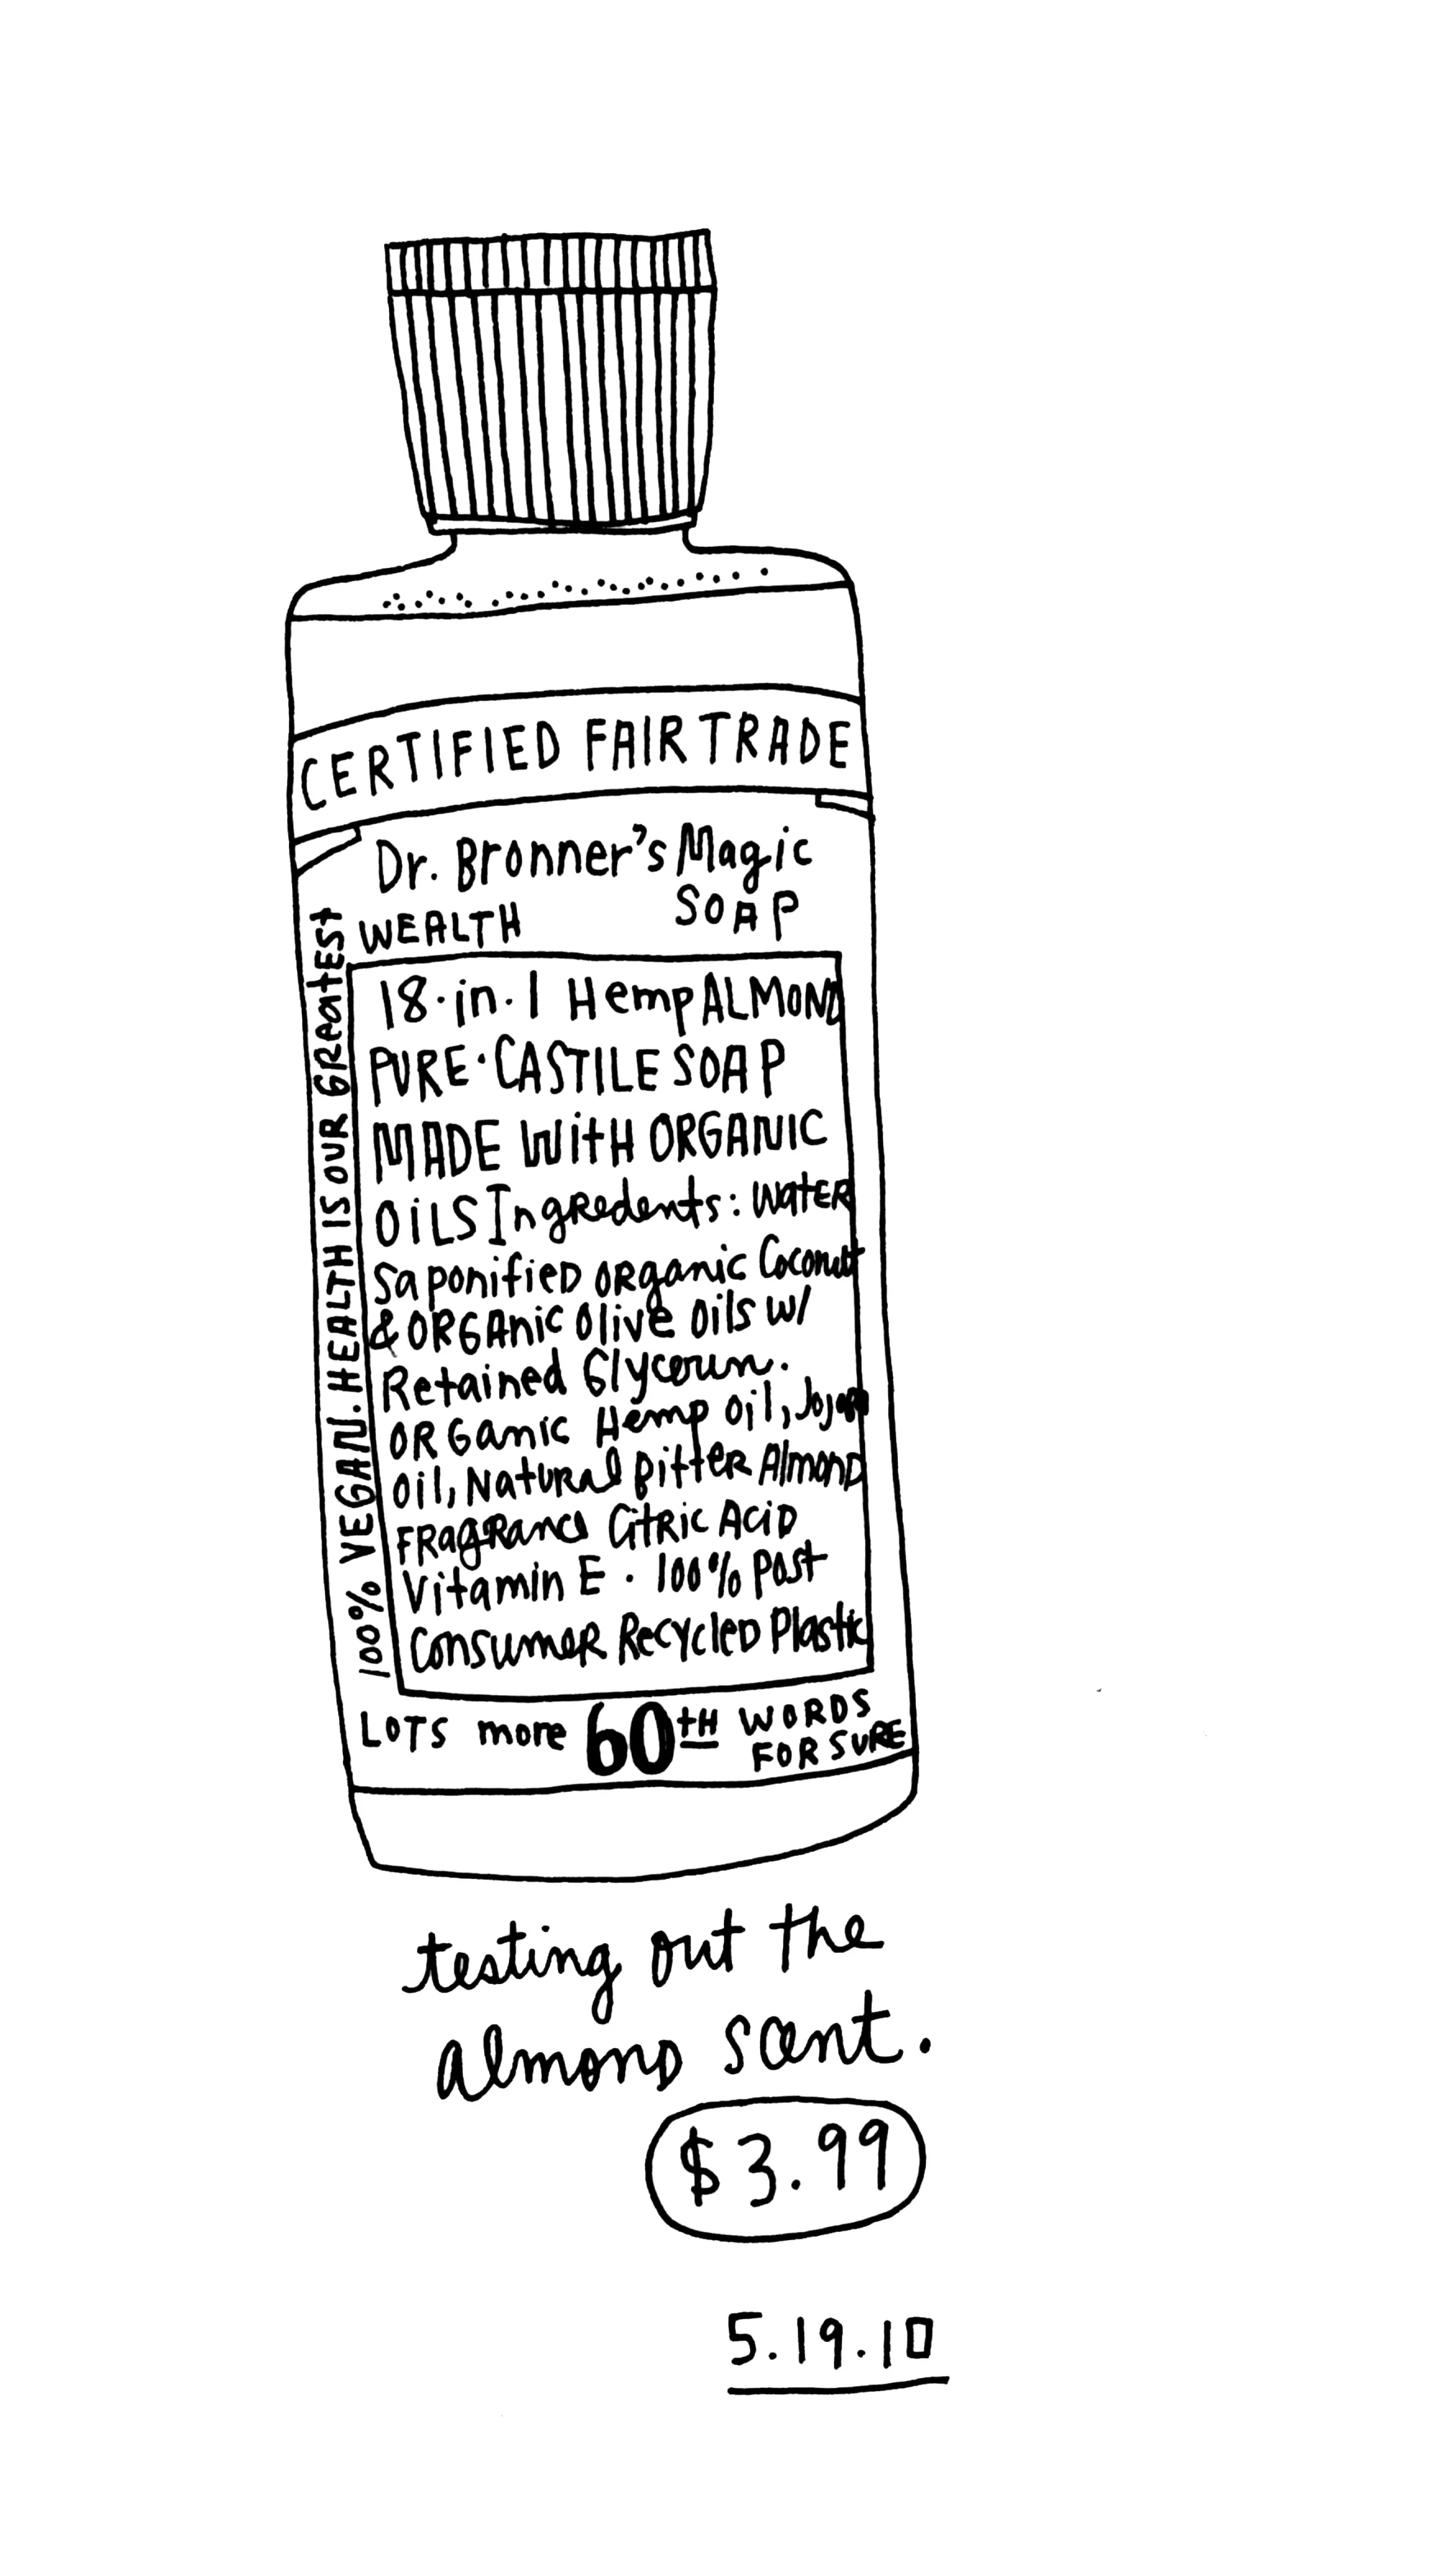 CERTIFIED FAIR TRADE
Dr. Bronner's Magic
SOAP
100% VEGAN. HEALTH IS OUR GREATEST
WEALTH
18·in·1 Hemp ALMOND
PURE·CASTILE SOAP
MADE WITH ORGANIC
OILS Ingredents: WATER
Saponified ORganic Coconut
& ORGAnic Olive Oils w/
Retained Glycerin.
ORGanic Hemp Oil, Jojoba
Oil, Natural Bitter Almond
FRagRance CitRic Acid
Vitamin E · 100% Post
Consumer Recycled Plastic
LOTS more 60TH WORDS
FOR SURE
testing out the
almond scent.
$3.99
5.19.10